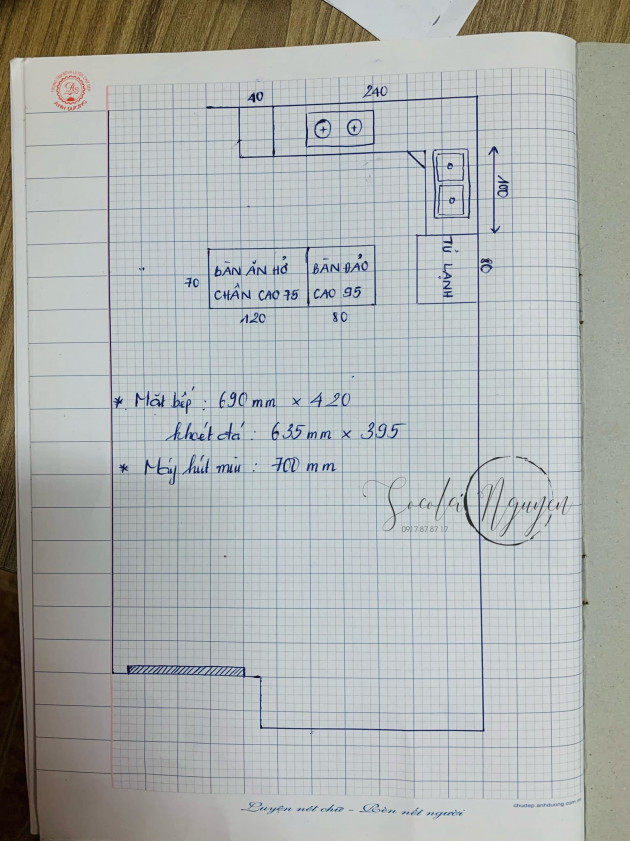 40
240
100
TỦ LẠNH
80
BÀN ĂN HỞ
CHÂN CAO 75
BÀN ĐẢO
CAO 95
70
120
80
* Mặt bếp : 690 mm × 420
khoét đá : 635 mm × 395
* Máy hút mùi : 700 mm
Socola Nguyễn
Luyện nét chữ - Rèn nết người